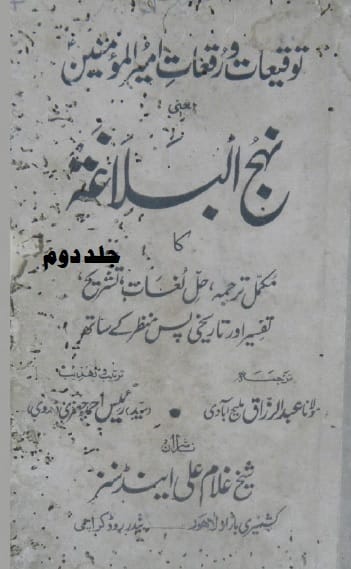 توقیعات و رقعات امیر المؤمنین
یعنی
نہج البلاغتہ
کا
جلد دوم
مکمل ترجمہ، حل لغات، تشریح،
تفسیر اور تاریخی پس منظر کے ساتھ
ترجمہ
ترتیب و تہذیب
مولانا عبدالرزاق ملیح آبادی
(سید) رئیس احمد جعفری (ندوی)
ناشران
شیخ غلام علی اینڈ سنز
کشمیری بازار لاہور
بندر روڈ کراچی